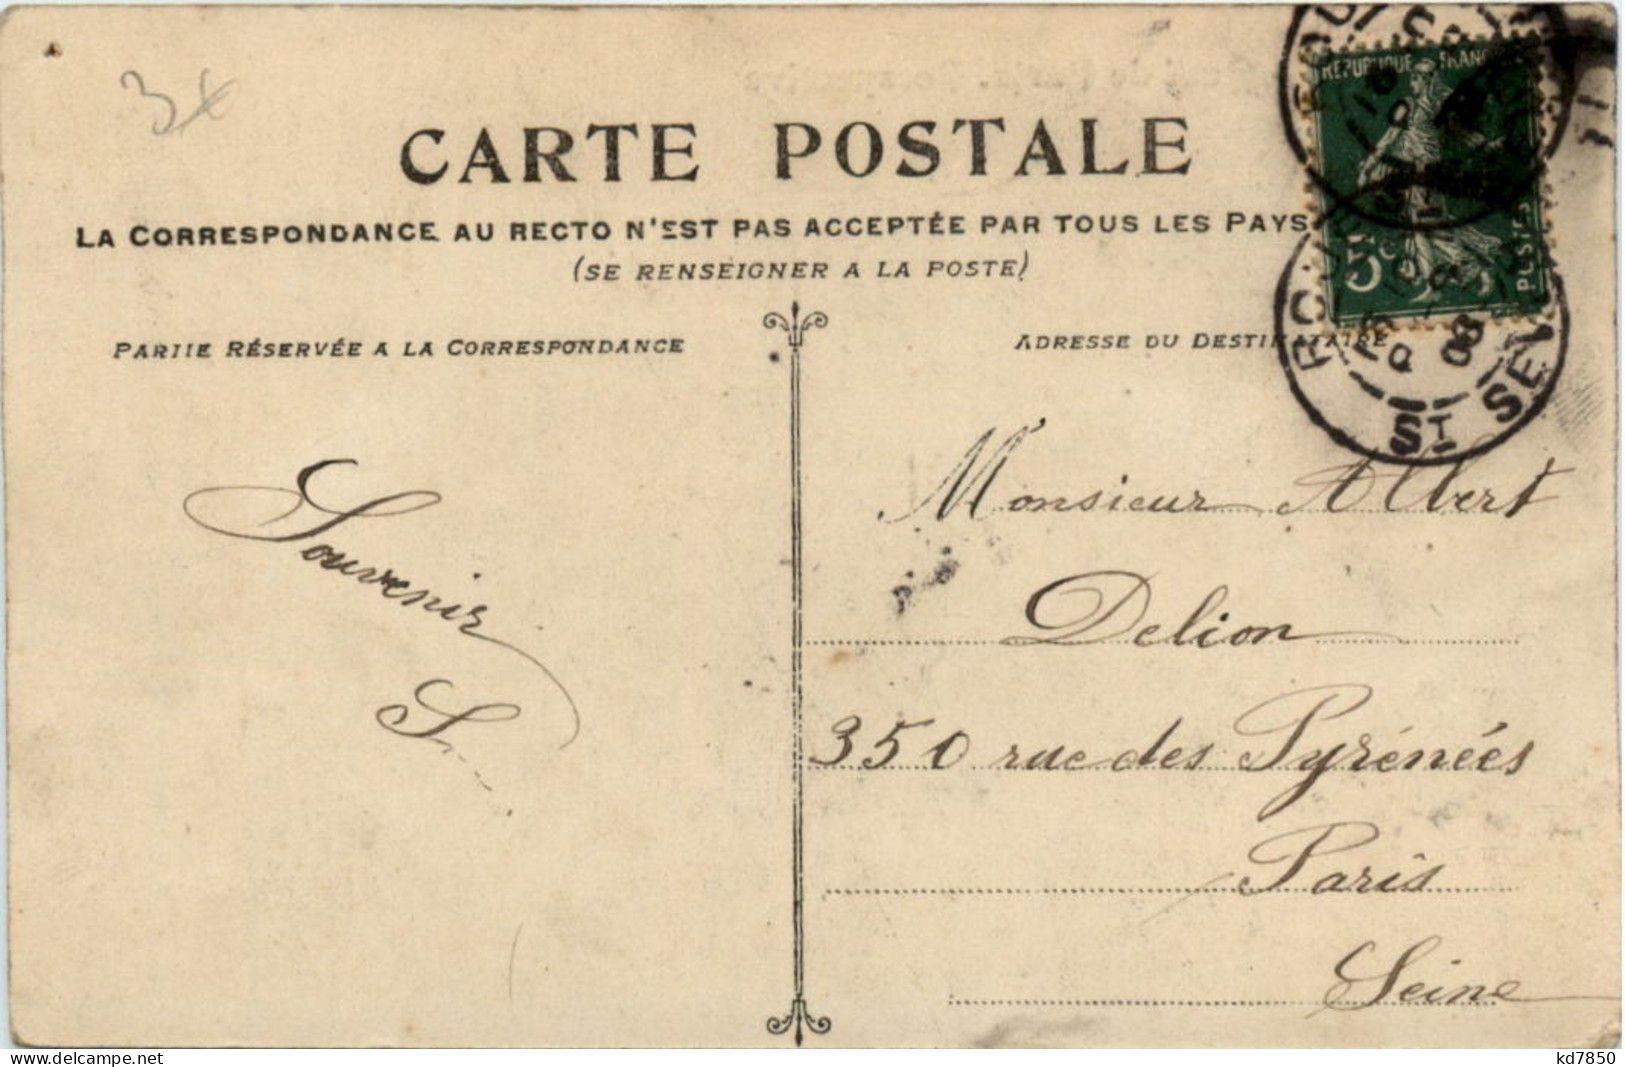 3x
CARTE POSTALE
LA CORRESPONDANCE AU RECTO N'EST PAS ACCEPTÉE PAR TOUS LES PAYS
(SE RENSEIGNER A LA POSTE)
PARTIE RÉSERVÉE A LA CORRESPONDANCE
ADRESSE DU DESTINATAIRE
REPUBLIQUE FRANC
5c
POSTES
ST SEV
08
Souvenir
S
Monsieur Albert
Delion
350 rue des Pyrénées
Paris
Seine
www.delcampe.net
kd7850